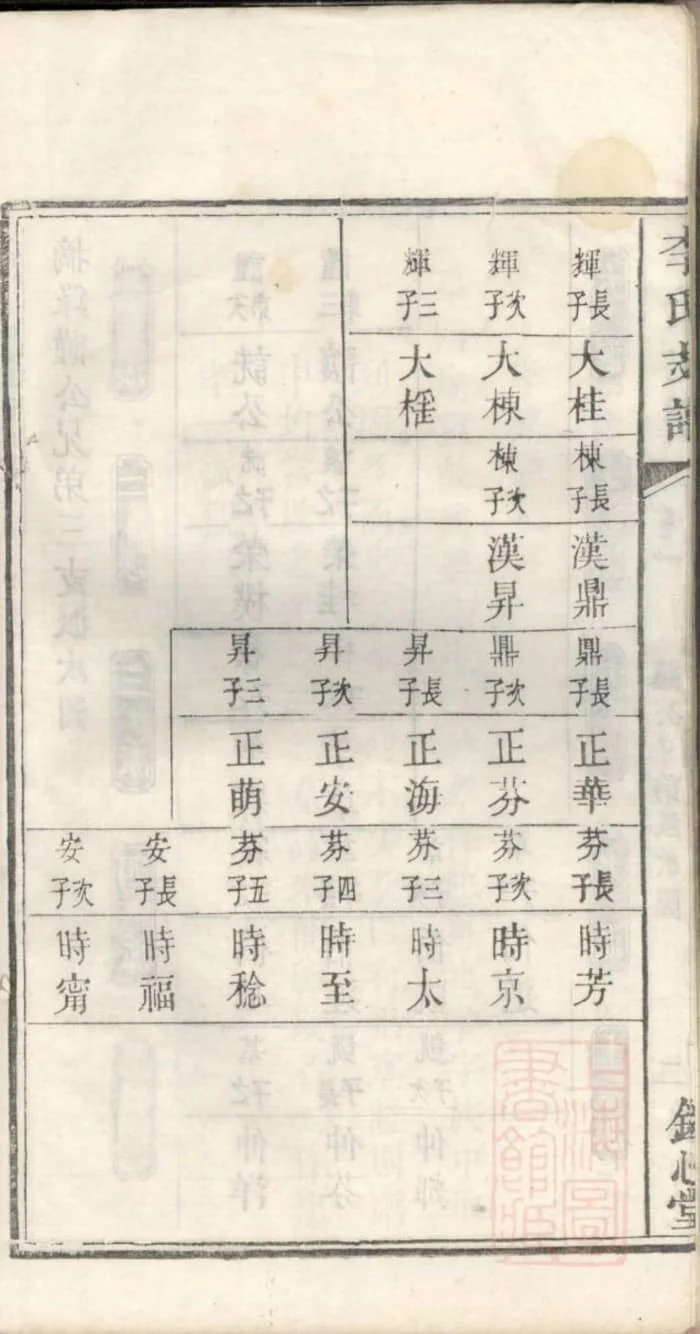 李氏支譜
輝長子
大桂
輝次子
大棟
輝三子
大榣
棟長子
漢鼎
棟次子
漢昇
鼎長子
正華
鼎次子
正芬
昇長子
正海
昇次子
正安
昇三子
正萌
芬長子
時芳
芬次子
時京
芬三子
時太
芬四子
時至
芬五子
時稔
安長子
時福
安次子
時甯
心堂
上海圖
書館藏